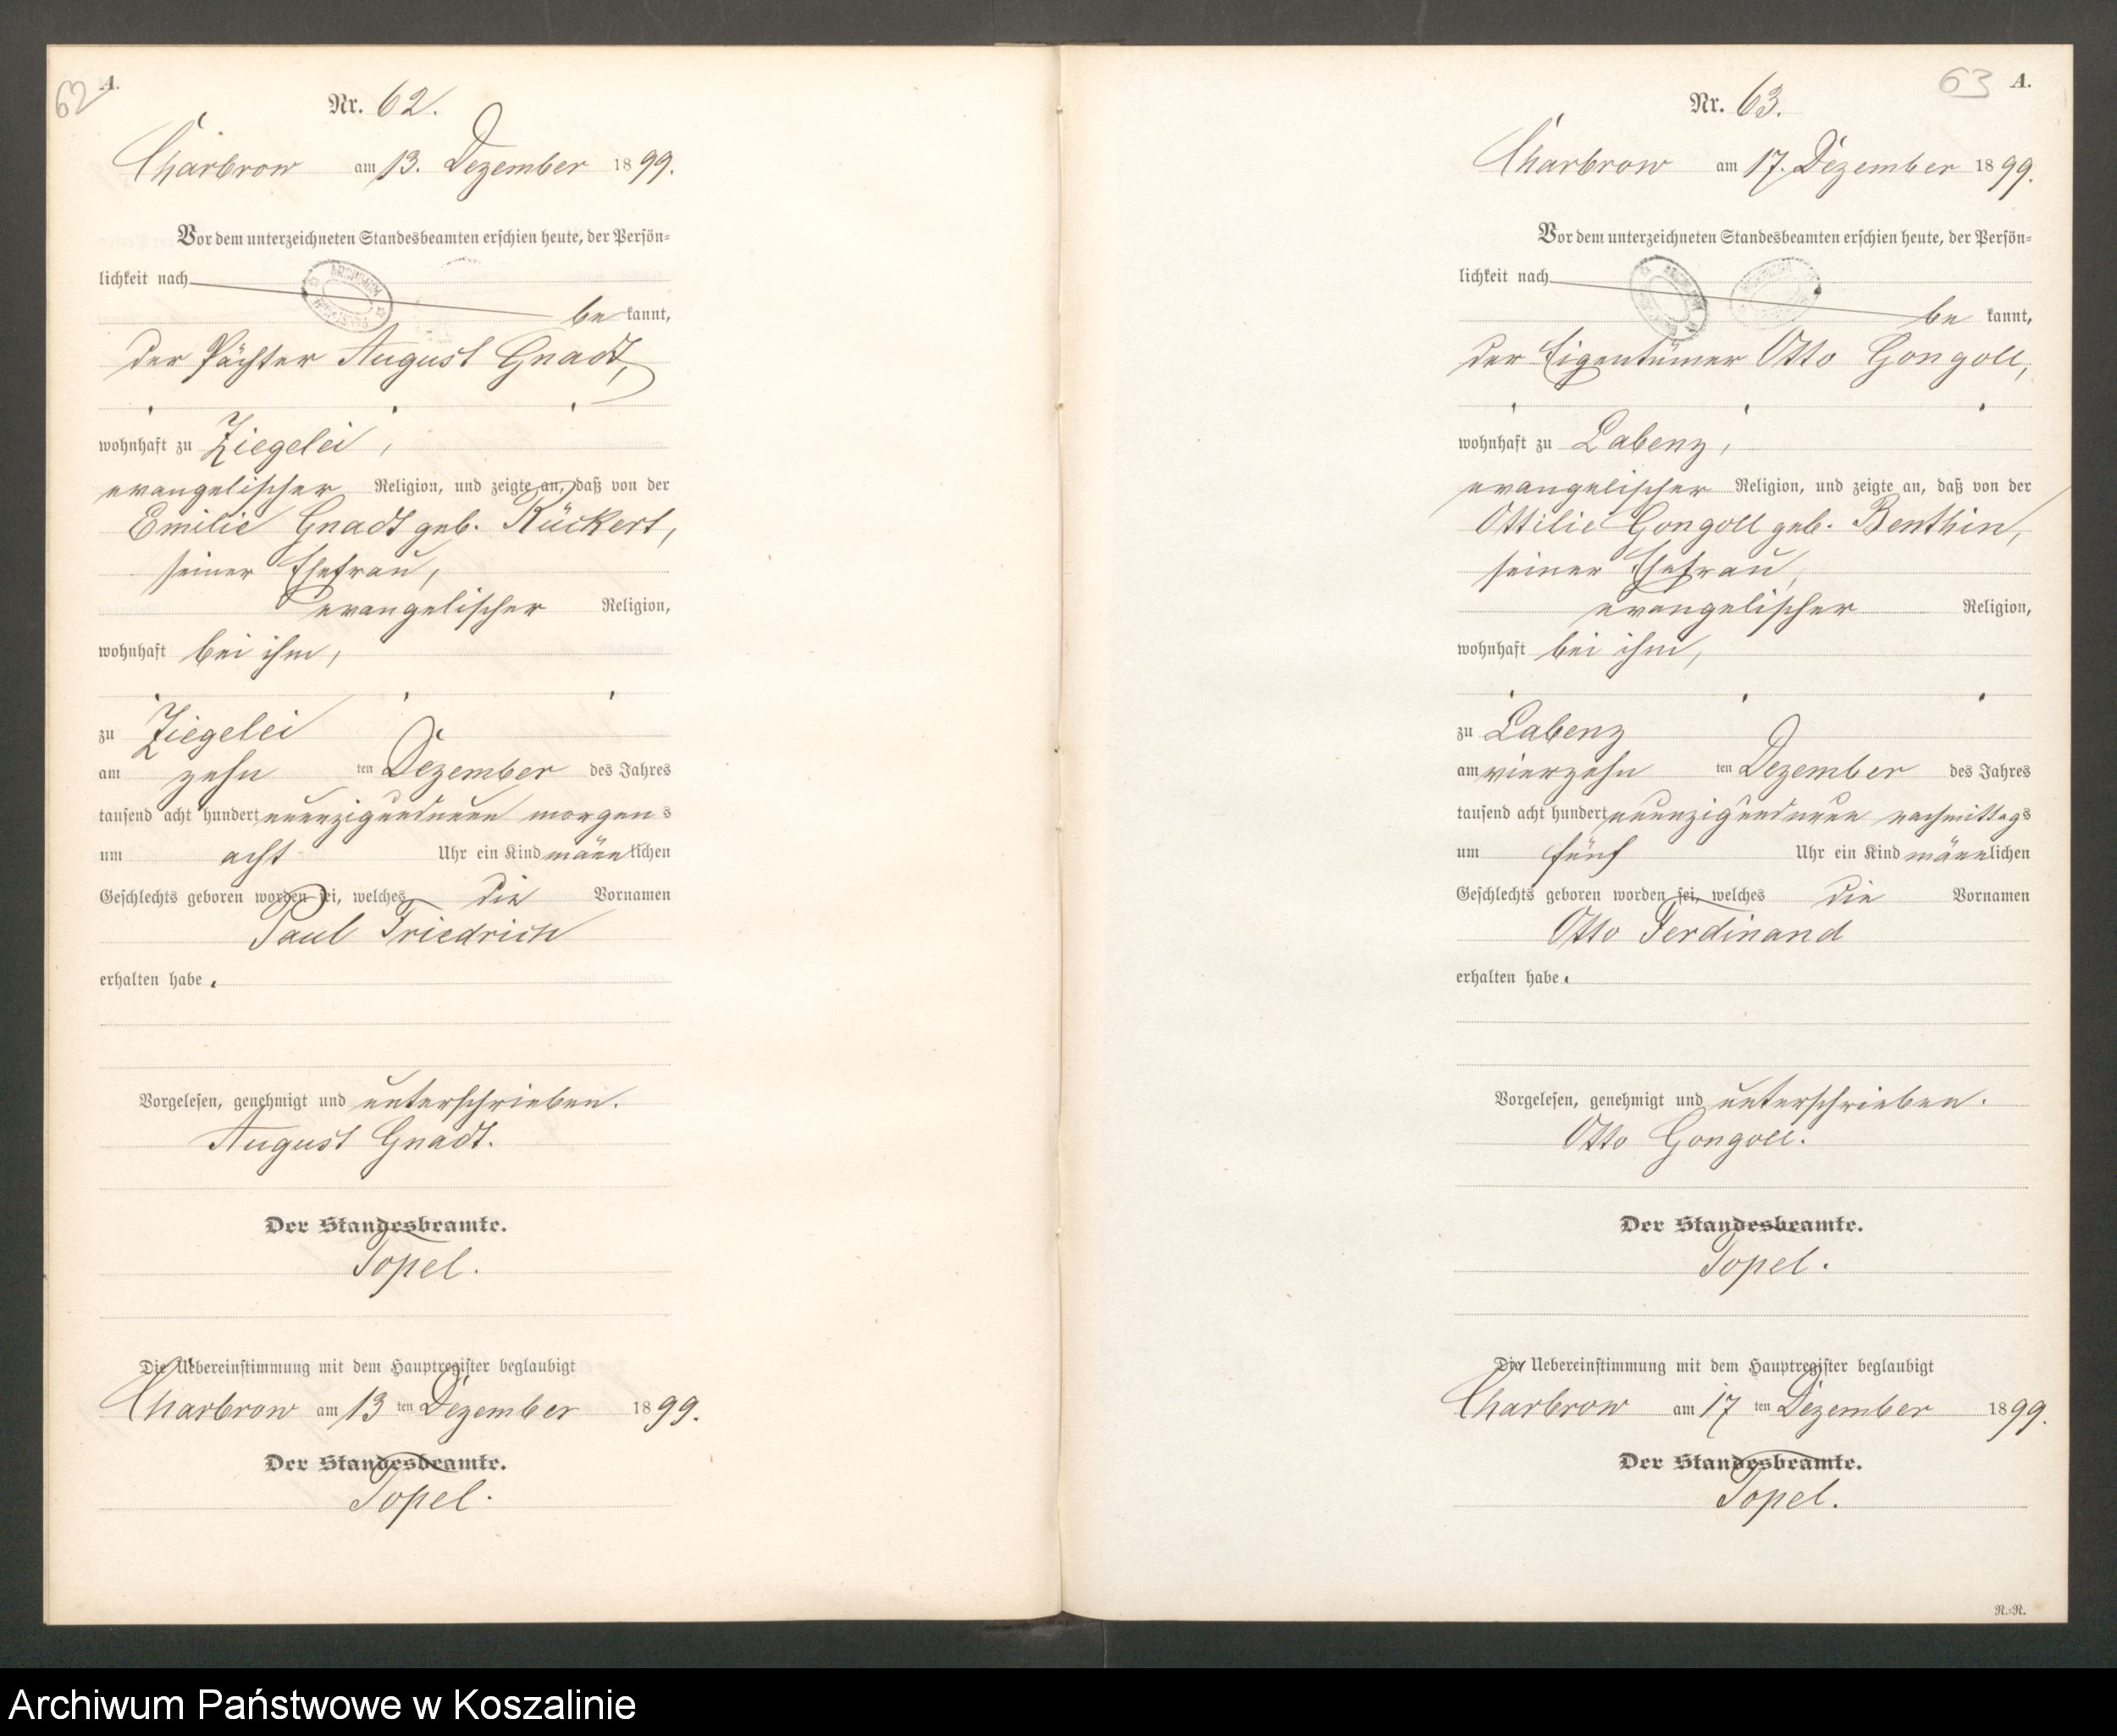 62
A.
Nr. 62.
Charbrow am 13. Dezember 1899.
Vor dem unterzeichneten Standesbeamten erschien heute, der Persön=
lichkeit nach
be kannt,
der Pächter August Gnadt,
wohnhaft zu Ziegelei,
evangelischer Religion, und zeigte an, daß von der
Emilie Gnadt geb. Rückert,
seiner Ehefrau,
evangelischer Religion,
wohnhaft bei ihm,
zu Ziegelei
am zehn ten Dezember des Jahres
tausend acht hundert neunzigundneun morgens
um acht Uhr ein Kind männlichen
Geschlechts geboren worden sei, welches die Vornamen
Paul Friedrich
erhalten habe.
Vorgelesen, genehmigt und unterschrieben.
August Gnadt.
Der Standesbeamte.
Topel.
Die Uebereinstimmung mit dem Hauptregister beglaubigt
Charbrow am 13 ten Dezember 1899.
Der Standesbeamte.
Topel.
63 A.
Nr. 63.
Charbrow am 17. Dezember 1899.
Vor dem unterzeichneten Standesbeamten erschien heute, der Persön=
lichkeit nach
be kannt,
der Eigentümer Otto Gongoll,
wohnhaft zu Labenz,
evangelischer Religion, und zeigte an, daß von der
Ottilie Gongoll geb. Benthin,
seiner Ehefrau,
evangelischer Religion,
wohnhaft bei ihm,
zu Labenz
am vierzehn ten Dezember des Jahres
tausend acht hundert neunzigundneun nachmittags
um fünf Uhr ein Kind männlichen
Geschlechts geboren worden sei, welches die Vornamen
Otto Ferdinand
erhalten habe.
Vorgelesen, genehmigt und unterschrieben.
Otto Gongoll.
Der Standesbeamte.
Topel.
Die Uebereinstimmung mit dem Hauptregister beglaubigt
Charbrow am 17 ten Dezember 1899.
Der Standesbeamte.
Topel.
R.=R.
Archiwum Państwowe w Koszalinie